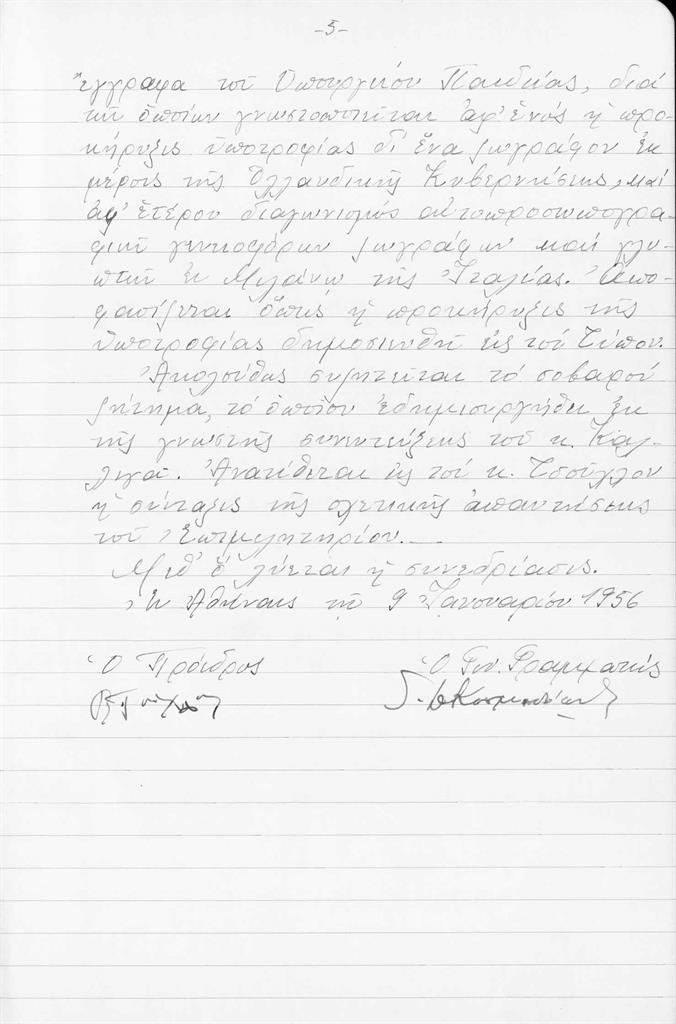 -5-
ἔγγραφα τοῦ Ὑπουργείου Παιδείας, διά
τῶν ὁποίων γνωστοποιεῖται ἀφ' ἑνός ἡ προ-
κήρυξις ὑποτροφίας δι' ἕνα ζωγράφον ἐκ
μέρους τῆς Ὁλλανδικῆς Κυβερνήσεως, καί
ἀφ' ἑτέρου διαγωνισμός αὐτοπροσωπογρα-
φιῶν ζωγράφων καί γλυ-
πτῶν ἐν Μιλάνῳ τῆς Ἰταλίας. Ἀπο-
φασίζεται ὅπως ἡ προκήρυξις τῆς
ὑποτροφίας δημοσιευθῇ εἰς τόν Τύπον.
Ἀκολούθως συζητεῖται τό σοβαρόν
ζήτημα, τό ὁποῖον ἐδημιουργήθη ἐκ
τῆς γνωστῆς συνεντεύξεως τοῦ κ. Καλ-
λιγᾶ. Ἀνατίθεται εἰς τόν κ. Τσοῦχλον
ἡ σύνταξις τῆς σχετικῆς ἀπαντήσεως
τοῦ Ἐπιμελητηρίου.—
Μεθ' ὅ λύεται ἡ συνεδρίασις.
Ἐν Ἀθήναις τῇ 9 Ἰανουαρίου 1956
Ὁ Πρόεδρος Ὁ Γεν. Γραμματεύς